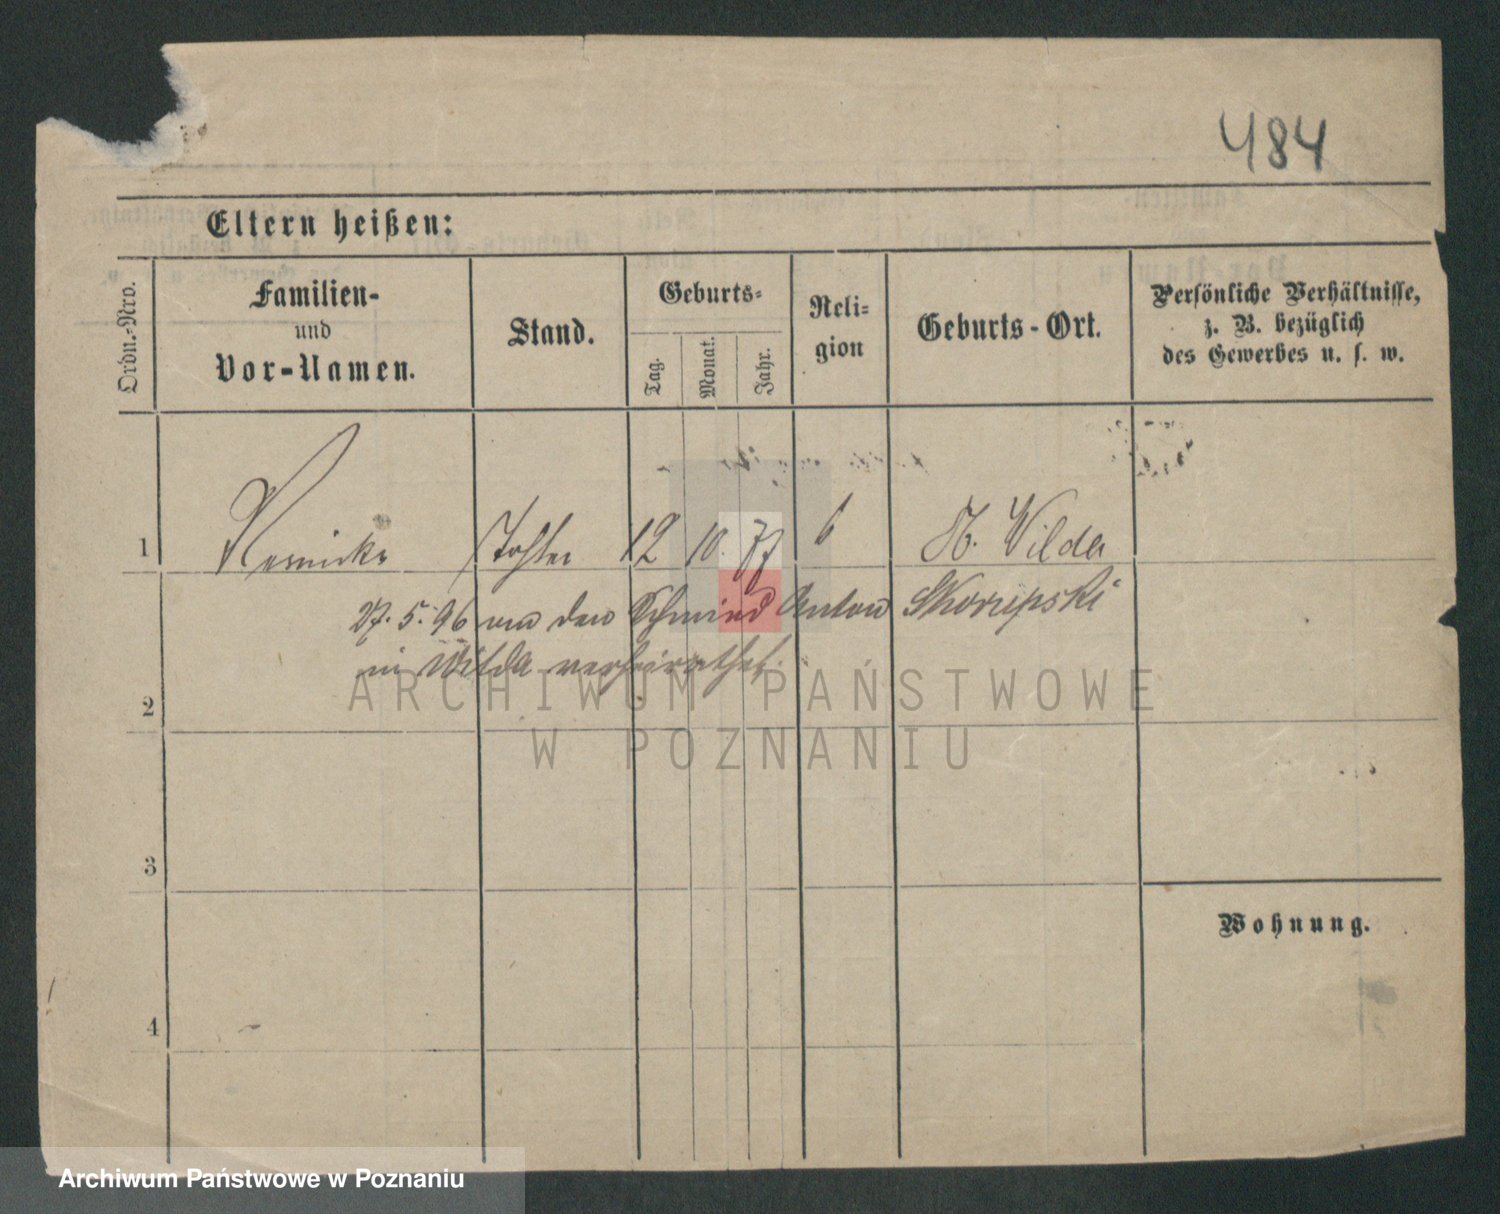 484
Eltern heißen:
Ordn.-Nro.
Familien-
und
Vor-Namen.
Stand.
Geburts-
Tag.
Monat.
Jahr.
Reli-
gion
Geburts-Ort.
Persönliche Verhältnisse,
z. B. bezüglich
des Gewerbes u. s. w.
1
Tochter 12 10. 77 H. Wilda
27. 5. 96 an den Schmied Anton Skorupski
in Wilda verheirathet.
2
ARCHIWUM PAŃSTWOWE
W POZNANIU
3
Wohnung.
4
Archiwum Państwowe w Poznaniu